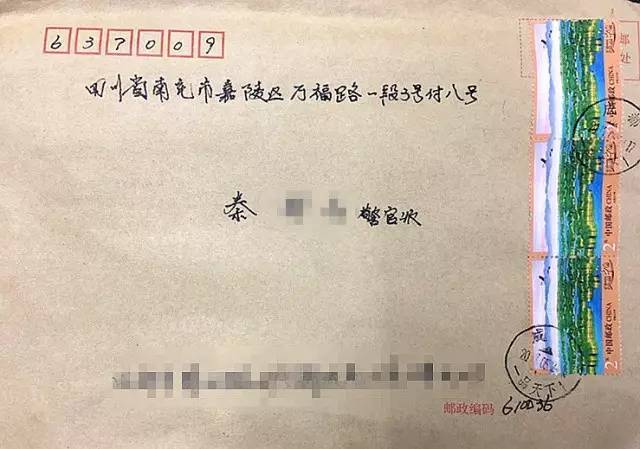 637009
四川省南充市嘉陵区万福路一段3号付八号
秦 警官收
邮政编码 610036
中国邮政 CHINA
中国邮政 CHINA
中国邮政 CHINA
一品天下